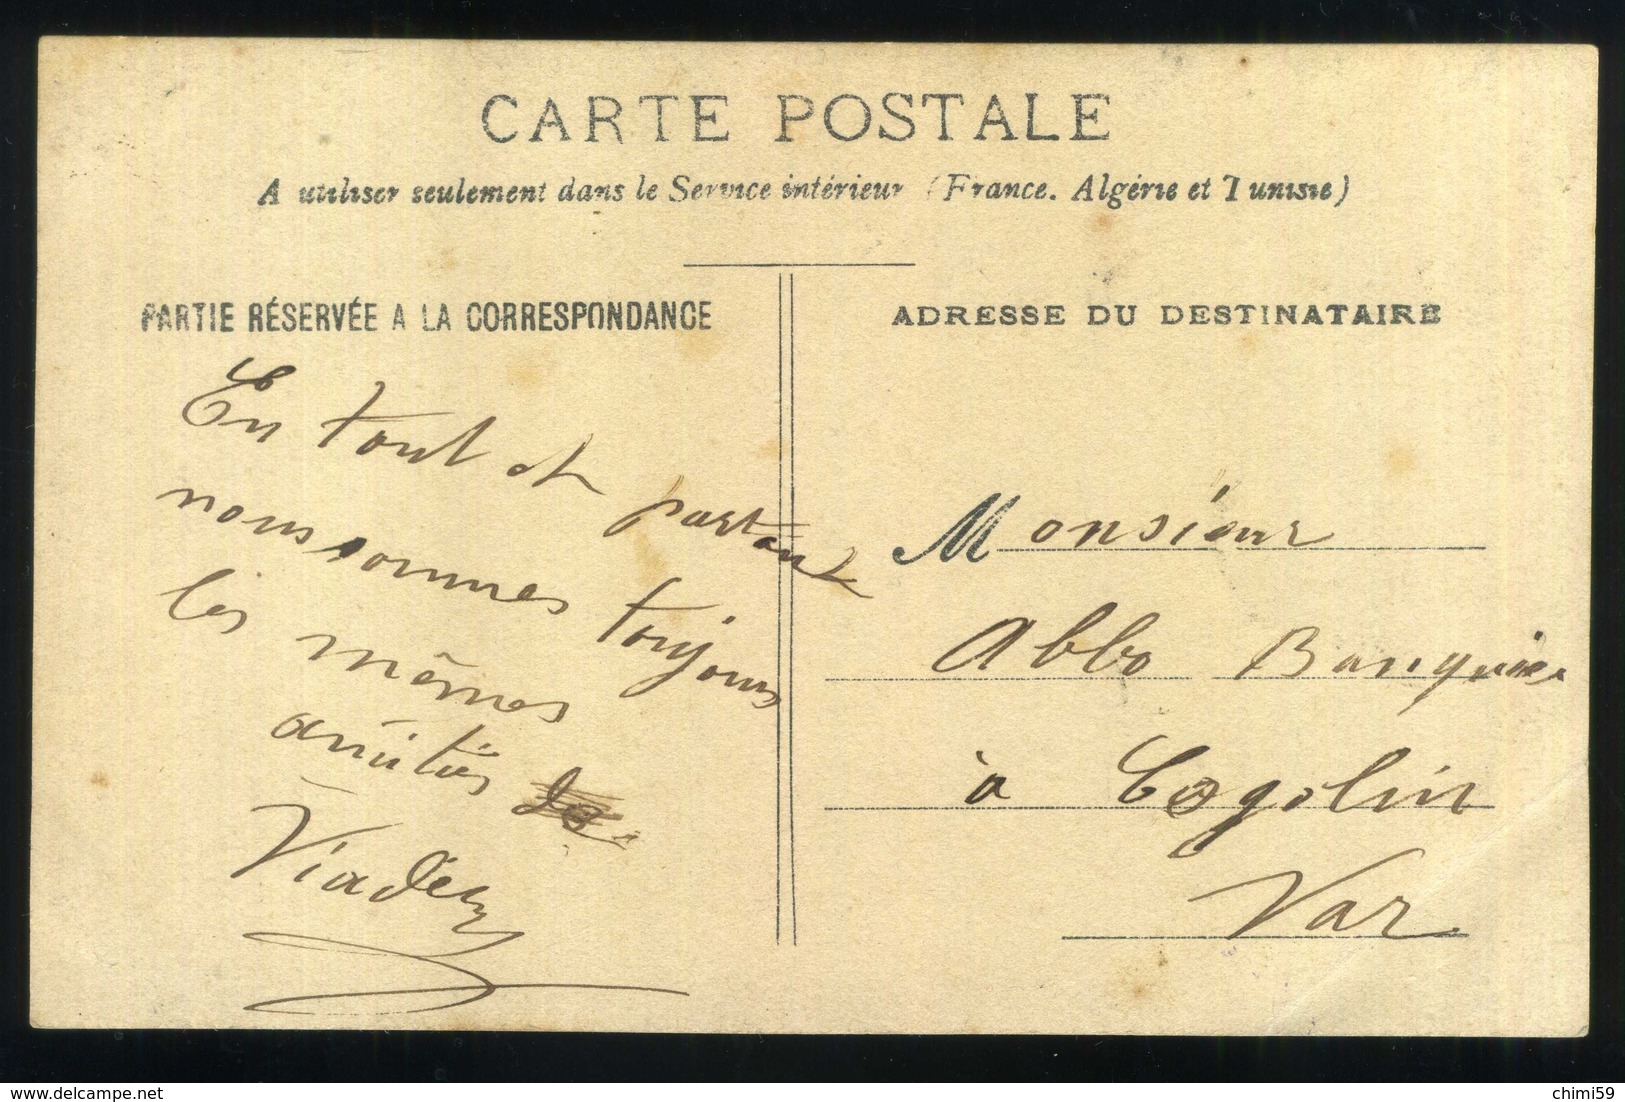 CARTE POSTALE
A utiliser seulement dans le Service intérieur (France, Algérie et Tunisie)
PARTIE RÉSERVÉE A LA CORRESPONDANCE
En tout et partout
nous sommes toujours
les mêmes
amitiés
ADRESSE DU DESTINATAIRE
Monsieur
Abbo Banquier
à Cogolin
Var
chimi59